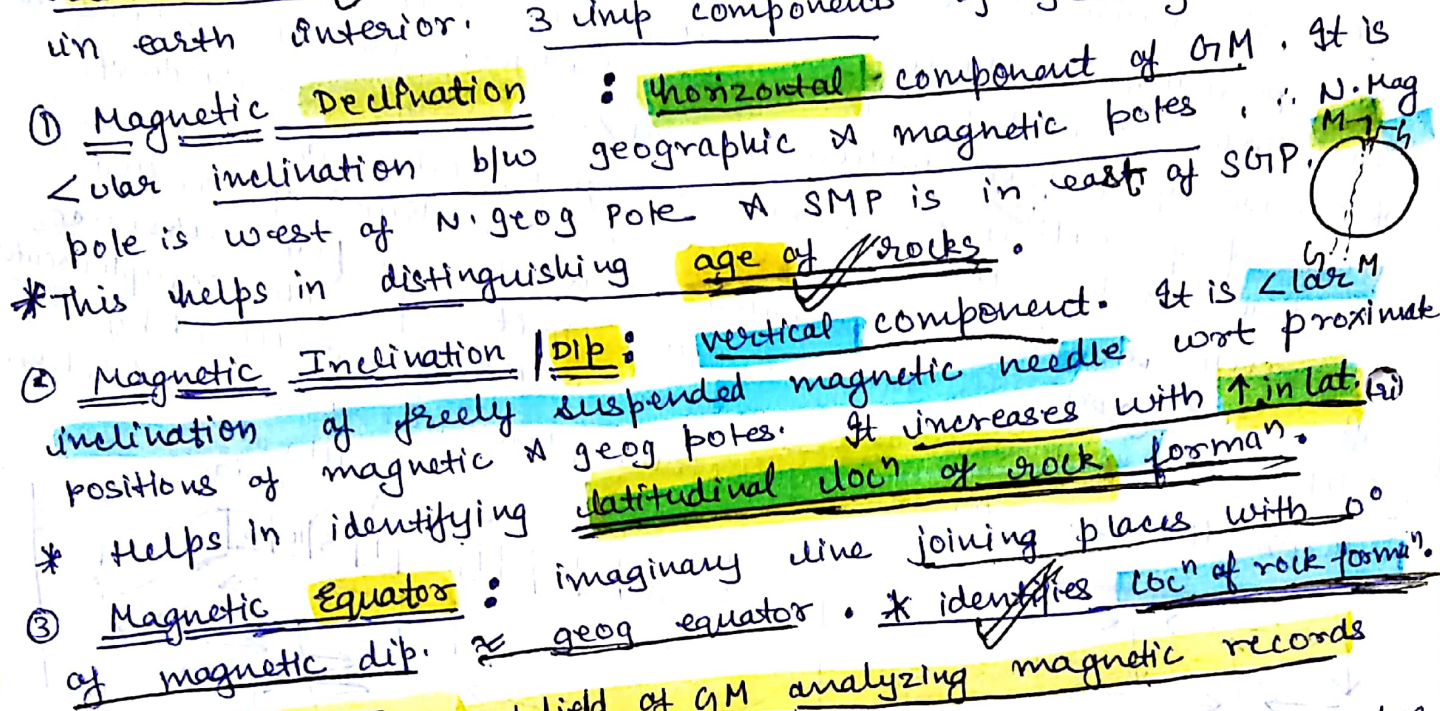 in earth interior. 3 imp components
① Magnetic Declination : horizontal component of GM. It is
<ular inclination b/w geographic & magnetic poles, ∴ N. Mag
pole is west of N. geog Pole & SMP is in east of SGP.
* This helps in distinguishing age of rocks.
M G
G M
② Magnetic Inclination / Dip : vertical component. It is <lar
inclination of freely suspended magnetic needle wrt proximate
positions of magnetic & geog poles. It increases with ↑ in lat.
* Helps in identifying latitudinal locⁿ of rock formaⁿ.
③ Magnetic Equator : imaginary line joining places with 0°
of magnetic dip. ≈ geog equator. * identifies locⁿ of rock formaⁿ.
field of GM analyzing magnetic records